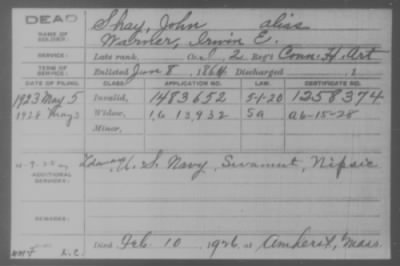 DEAD
NAME OF SOLDIER: Shay, John alias
Warner, Irwin E.
SERVICE: Late rank, Co. I, 2 Reg't Conn. H. Art
TERM OF SERVICE: Enlisted Jan 8, 1864 Discharged , 1
DATE OF FILING. CLASS. APPLICATION NO. LAW. CERTIFICATE NO.
1923 May 5 Invalid, 1483652 5-1-20 1258374
1928 May 3 Widow, 1613,932 5a a6-15-28
Minor,
ADDITIONAL SERVICES: U. S. Navy, Swamut, Nipsic
REMARKS:
Died Feb. 10, 1926, at Amherst, Mass.